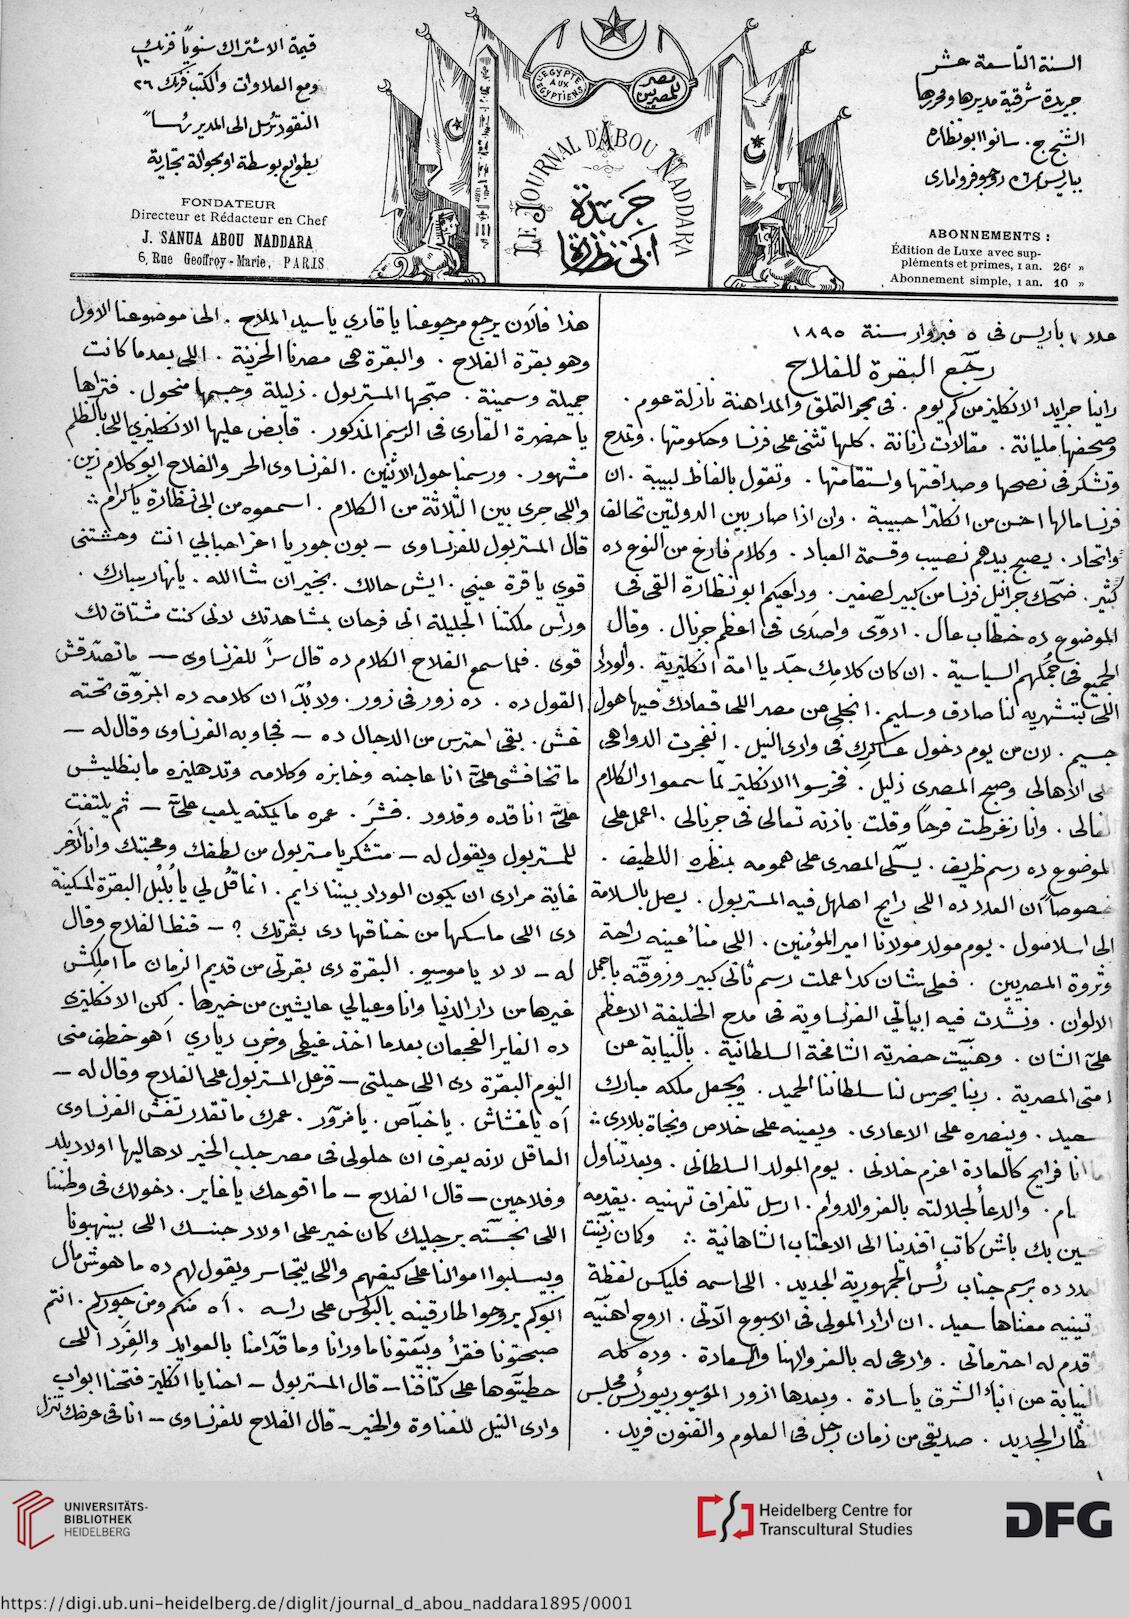 السنة التاسعة عشر
جريدة شرقية مديرها ومحررها
الشيخ ج. سانوا ابونظاره
بباريس ٦ رو جوفروا مارى
ABONNEMENTS :
Édition de Luxe avec sup-
pléments et primes, 1 an. 26ᶠ »
Abonnement simple, 1 an. 10 »
L'EGYPTE AUX EGYPTIENS
مصر للمصريين
LE JOURNAL D'ABOU NADDARA
جريدة
ابى نظارة
قيمة الاشتراك سنويًا فرنك ١٠
ومع العلاوات والكتب فرنك ٢٦
النقود ترسل الى المدير رأسا
بطوابع بوسطة او بحوالة تجارية
FONDATEUR
Directeur et Rédacteur en Chef
J. SANUA ABOU NADDARA
6, Rue Geoffroy-Marie, PARIS
عدد ١ باريس فى ٥ فبراير سنة ١٨٩٥
رجّع البقرة للفلاح
راينا جرايد الانكليز من كم يوم . فى بحر التملق والمداهنة نازلة عوم .
وصحفها مليانة . مقالات رنانة . كلها تثنى على فرنسا وحكومتها . وتمدح
وتشكر فى نصحها وصداقتها واستقامتها . وتقول بالفاظ لبيبة . ان
فرنسا مالها احسن من انكلترا حبيبة . وان اذا صار بين الدولتين تحالف
واتحاد . يصبح بيدهم نصيب وقسمة العباد . وكلام فارغ من النوع ده
كثير . ضحّك جرانيل فرنسا من كبير لصغير . ودلعيكم ابو نظارة القى فى
الموضوع ده خطاب عال . ادوّى واصدى فى اعظم جرنال . وقال
الجميع فى جملهم السياسية . ان كان كلامك جد يا امة انكليزية . والوداد
اللى بتشهريه لنا صادق وسليم . انجلى من مصر اللى قعادك فيها هول
جسيم . لان من يوم دخول عساكرك فى وادى النيل . انفجرت الدواهى
على الاهالى وصبح المصرى ذليل . فخرسوا الانكليز لمّا سمعوا دالكلام
وانا زغرطت فرحًا وقلت باذنه تعالى فى جرنالى . اعمل على
الموضوع ده رسم ظريف . يسلّى المصرى على همومه بمنظره اللطيف .
خصوصًا ان العدد ده اللى رايح اهلهل فيه المستربول . يصل بالسلامة
الى اسلامبول . يوم مولد مولانا امير المؤمنين . اللى مناعينه راحة
وثروة المصريين . فعلى شان كدا عملت رسم ثانى كبير وزوقته باجمل
الالوان . ونشدت فيه ابياتى الفرنساوية فى مدح الخليفة الاعظم
علىّ الشان . وهنّيت حضرته الشامخة السلطانية . بالنيابة عن
امتى المصرية . ربنا يحرس لنا سلطاننا الحميد . ويجعل ملكه مبارك
سعيد . وينصره على الاعادى . ويعينه على خلاص ونجاة بلادى ∴
انا فرايح كالعادة اعزم خلانى . يوم المولد السلطانى . وبعد تناول
والدعا لجلالته بالعز والدوام . ارسل تلغراف تهنيه . يقدمه
تحسين بك باش كاتب افندينا الى الاعتاب الشاهانية ∴ وكان زيّنت
العدد ده برسم جناب رئيس الجمهورية الجديد . اللى اسمه فليكس لفظة
تينيه معناها سعيد . ان اراد المولى فى الاسبوع الآتى . اروح اهنّيه
واقدم له احترماتى . وادعى له بالعز والهنا والسعادة . وده كله
بالنيابة عن ابناء الشرق ياسادة . وبعدها ازور الموسيو ريبو رئيس مجلس
النظار الجديد . صديقى من زمان رجل فى العلوم والفنون فريد .
١
هذا فالآن يرجع مرجوعنا يا قارى يا سيد الملاح . الى موضوعنا الاول
وهو بقرة الفلاح . والبقرة هى مصرنا الحزينة . اللى بعدما كانت
جميلة وسمينة . صبّحها المستربول . ذليلة وجسمها منحول . فتراها
يا حضرة القارى فى الرسم المذكور . قابض عليها الانكليزى اللى بالظلم
مشهور . ورسمنا حول الاثنين . الفرنساوى الحر والفلاح ابو كلام زين .
واللى جرى بين الثلاثة من الكلام . اسمعوه من ابى نظارة ياكرام ∴
قال المستربول للفرنساوى — بون جور يا اعز احبابي انت وحشتنى
قوي يا قرة عيني . ايش حالك . بخير ان شا الله . يا نهار مبارك .
وراس ملكتنا الجليلة انى فرحان بمشاهدتك لانى كنت مشتاق لك
قوى . فلما سمع الفلاح الكلام ده قال سرًا للفرنساوى — ما تصدّقش
القول ده . ده زور فى زور . ولابدّ ان كلامه ده المزوّق تحته
غش . بقى احترس من الدجال ده — فجاوبه الفرنساوى وقال له —
ما تخافشى علىّ انا عاجنه وخابزه وكلامه وتدهليزه ما ينطليش
علىّ انا قده وقدود . فشر . عمره ما يمكنه يلعب علىّ — ثم يلتفت
للمستربول ويقول له — متشكر يا مستربول من لطفك ومحبتك وانا الآخر
غاية مرادى ان يكون الوداد بيننا دايم . انما قل لي يا بلبل البقرة المسكينة
دى اللى ماسكها من خناقها دى بقرتك ؟ — فنط الفلاح وقال
له — لا لا يا موسيو . البقرة دى بقرتى من قديم الزمان ما املكش
غيرها من دار الدنيا وانا وعيالي عايشين من خيرها . لكن الانكليزى
ده الفاير الفجعان بعدما اخذ غيطى وخرب ديارى اهو خطف منى
اليوم البقرة دى اللى حيلتى — فزعل المستربول على الفلاح وقال له —
اه يا غشاش . يا خبّاص . يا مزوّر . عمرك ما تقدر تغش الفرنساوى
العاقل لانه يعرف ان حلولى فى مصر جلب الخير لاهاليها اولاد بلد
وفلاحين — قال الفلاح — ما اقوحك يا غاير . دخولك فى وطننا
اللى نجسته برجليك كان خير على اولاد جنسك اللى بينهبونا
ويسلبوا اموالنا على كيفهم واللى يتجاسر ويقول لهم ده ما هوش مال
ابوكم يروحوا طارقينه بالبوكس على راسه . اه منكم ومن جوركم . انتم
صبحتونا فقرا وبيّعتونا ما ورانا وما قدّامنا بالعوايد والفرد اللى
حطيتوها على كتافنا — قال المستربول — احنا يا انكليز فتحنا ابواب
وادى النيل للغناوة والخير — قال الفلاح للفرنساوى — انا فى عرضك تنزل
UNIVERSITÄTS-
BIBLIOTHEK
HEIDELBERG
Heidelberg Centre for
Transcultural Studies
DFG
https://digi.ub.uni-heidelberg.de/diglit/journal_d_abou_naddara1895/0001